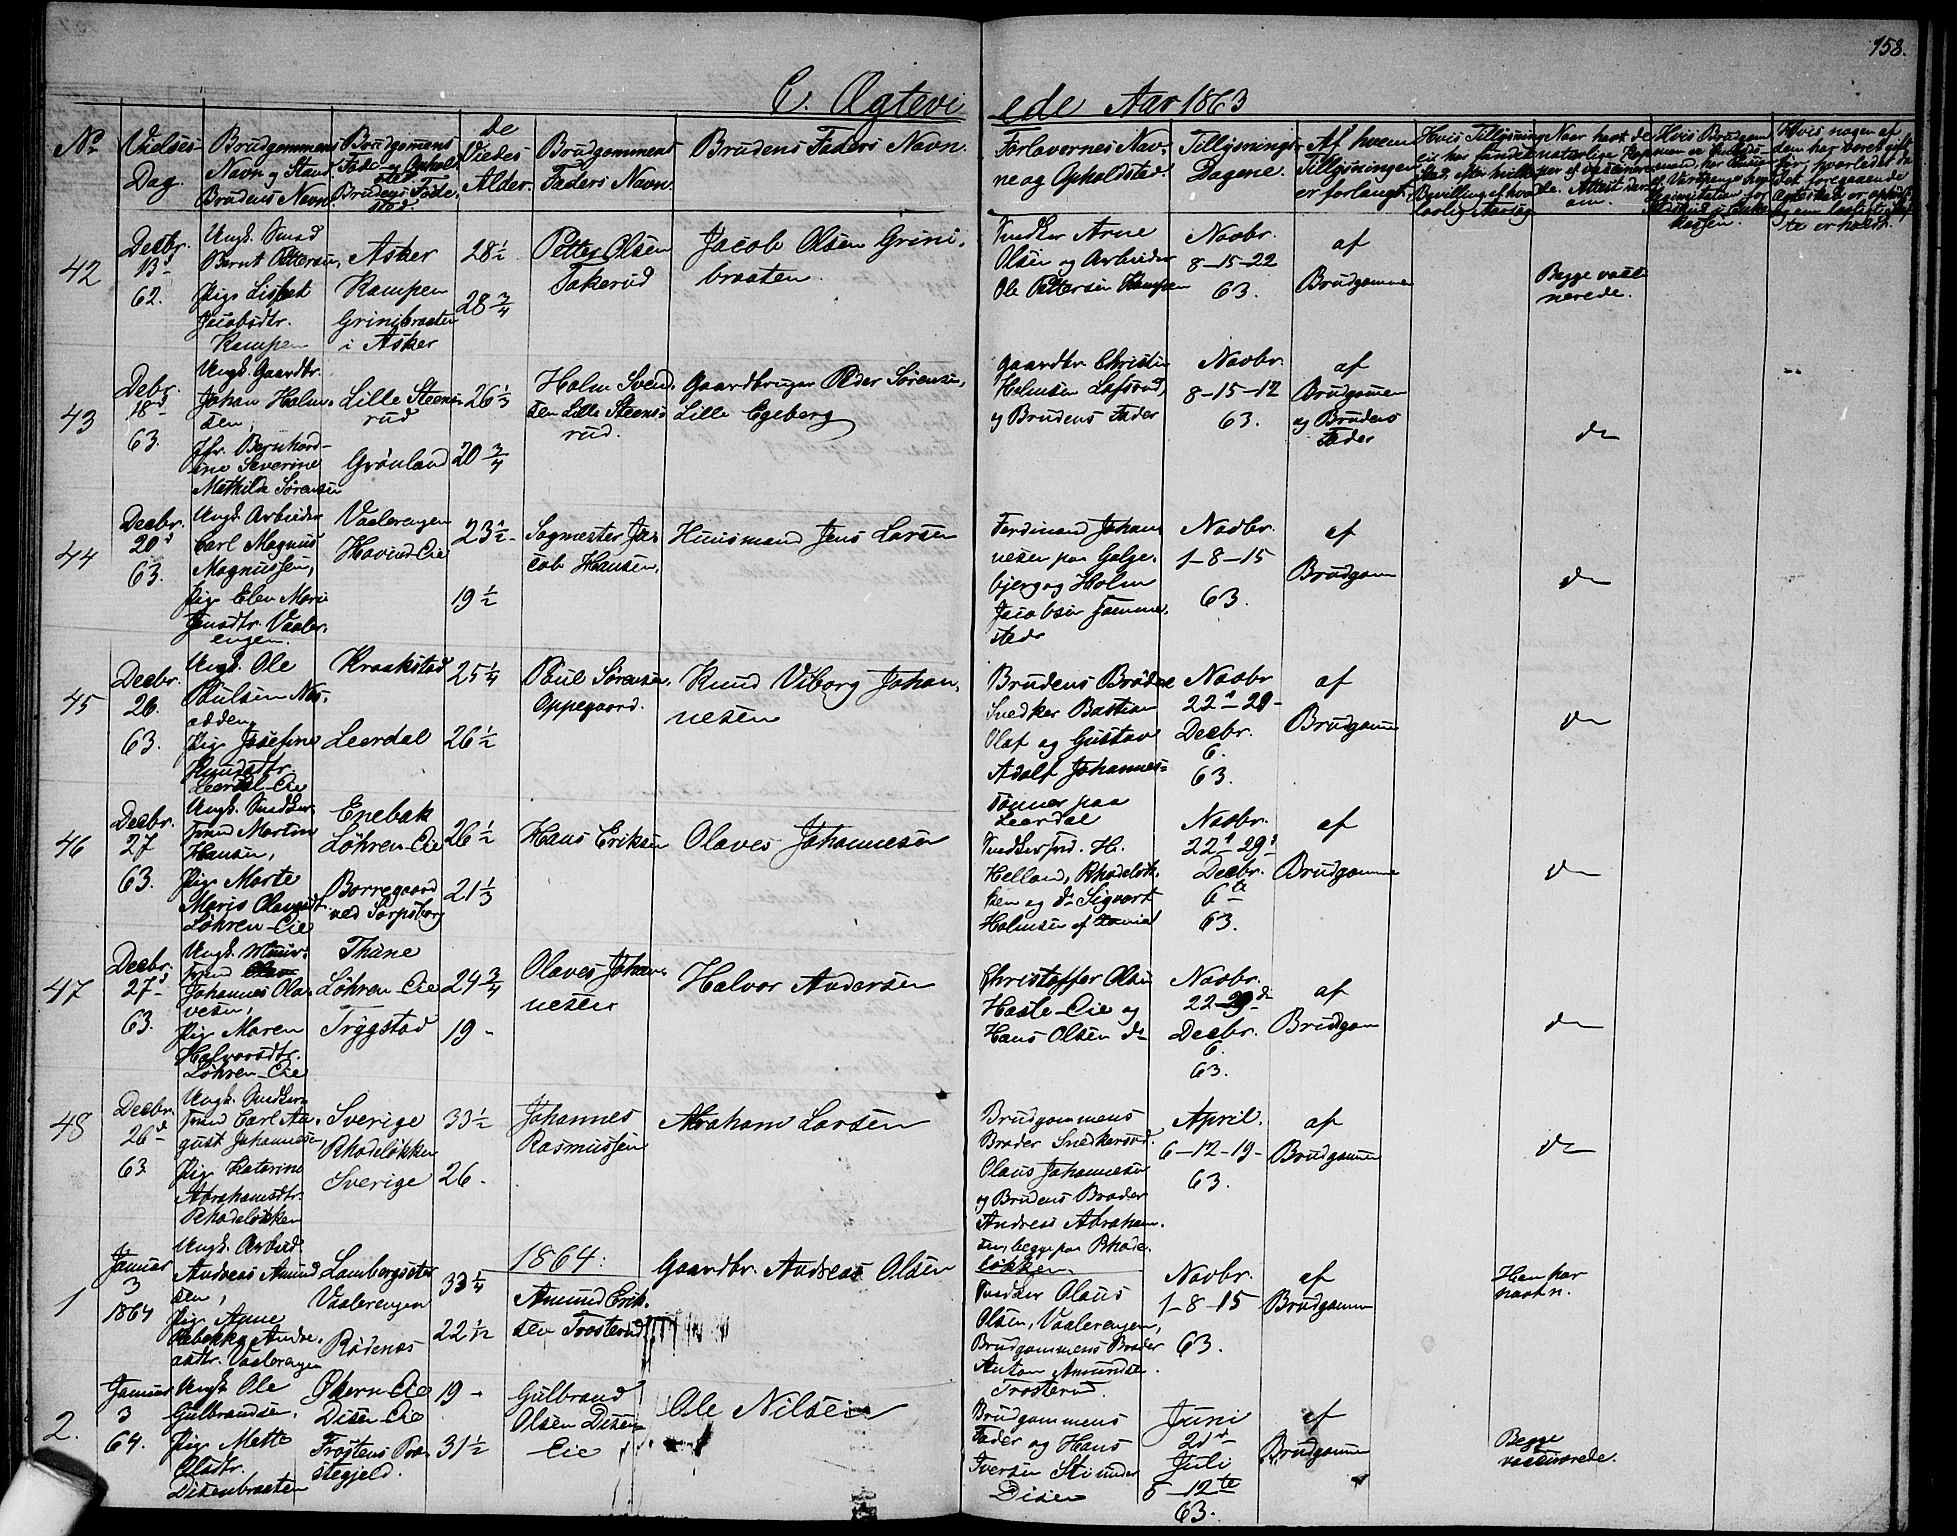 158.
C. Ægtevi ede Aar 1863
No
Vielses Dag.
Brudgommens Navn og Stand Brudens Navn
Brudgommens Føde og Opholds Sted Brudens Føde- sted.
de Viedes Alder.
Brudgommens Faders Navn.
Brudens Faders Navn.
Forlovernes Nav- ne og Opholdsted.
Tillysnings- Dagene.
Af hvem Tillysningen er forlangt.
42
Decbr.
13d
62.
Ungk. Snedk
Bernt Pettersen,
Pige Lisbet
Jacobsdtr.
Kampen
Asker
Kampen
Grinibraaten
i Asker
28½
28¾
Petter Olsen
Takerud
Jacob Olsen Grini-
braaten.
Snedker Arne
Olsen og Arbeider
Ole Pettersen Kampen
Novbr.
8-15-22
63.
af
Brudgommen
Begge vacci-
nerede.
43
Debr.
18d
63.
Ungk. Gaardbr.
Johan Holm-
sen,
Jfr. Bernhard-
ine Severine
Mathilde Sørensen
Lille Steens-
rud
Grønland
26⅓
20¾
Holm Svend-
sen Lille Steens-
rud.
Gaardbruger Peder Sørensen,
Lille Egeberg
Gaardbr. Christin
Holmsen Lofsrud,
og Brudens Fader
Novbr.
8-15-12
63.
af
Brudgommen
og Brudens
Fader
do
44
Decbr.
20d
63.
Ungk. Arbeider
Carl Magnus
Magnussen,
Pige Elen Marie
Jensdtr. Vaaler-
engen.
Vaalerengen
Hovind-Eie
23½
19½
Sagmester Ja-
cob Hansen,
Huusmand Jens Larsen
Ferdinand Johan-
nesen paa Galge-
bjerg og Holm
Jacobsen samme-
steds
Novbr.
1-8-15
63.
af
Brudgom
do
45
Decbr.
26.
63.
Ungk. Ole
Poulsen Nes-
odden,
Pige Josefine
Knudsdtr.
Leerdal-Eie
Kraakstad
Leerdal
25¼
26½
Poul Sørensen,
Oppegaard.
Knud Viborg Johan-
nesen
Brudens Brødre
Snedker Bastian
Olaf og Gustav
Adolf Johannes-
Tønner paa
Leerdal
Novbr
22d-29-
Decbr.
6.
63.
af
Brudgomme
do
46
Decbr.
27
63.
Ungk. Snedker-
svend Martin
Hansen,
Pige Marte
Marie Olavesdtr.
Løhren-Eie
Enebak
Løhren-Eie
Borregaard
ved Sarpsborg
26½
21⅓
Hans Eriksen
Olaves Johannesen
Snedkersvd. H.
Helland, Rhodeløk-
ken og do Sigvart
Holmsen af
Novbr.
22d 29d
Decbr.
6te
63.
af
Brudgomme
do
47
Decbr.
27d
63.
Ungk. Muur-
svend
Johannes Ola-
vesen,
Pige Maren
Halvorsdtr.
Løhren-Eie
Thune
Løhren-Eie
Trygstad
24¾
19-
Olaves Johan-
nesen
Halvor Andersen
Christoffer Olsen
Hasle-Eie og
Hans Olsen do
Novbr.
22-29de
Decbr.
6.
63.
af
Brudgom
do
48
Decbr.
26d
63
Ungk. Snedker-
svend Carl Au-
gust Johannesen,
Pige Katerine
Abrahamsdtr.
Rhodeløkken
Sverige
Rhodeløkken
Sverige
33½
26.
Johannes
Rasmussen
Abraham Larsen
Brudgommens
Broder Snedkersvd.
Olaus Johannesen
og Brudens Broder
Andreas Abraham-
sen, begge paa Rhode-
løkken.
April.
6-12-19-
63.
af
Brudgommen
do
1864.
1
Januar
3
1864
Ungk. Arbeid.
Andreas Amund-
sen,
Pige Anne
Rebekka Andre-
asdtr. Vaalerengen
Lambergseter
Vaalerengen
Rødenes
33¼
Amund Erik-
sen Trosterud
Gaardbr. Andreas Olsen
Snedker Olaus
Olsen, Vaalerengen,
Brudgommens Broder
Anton Amundsen
Trosterud.
Novbr.
1-8-15
63.
af
Brudgommen
Han har
havt n.
2.
Januar
3
64.
Ungk. Ole
Gulbrandsen.
Pige Mette
Olsdtr.
Disenbraaten
Økern-Eie
Disen-Eie
Trøgstens Præ-
stegjeld.
19-
31½
Gulbrand
Olsen Disen
Eie
Ole Nilsen
Brudgommens
Fader og Hans
Iversen Sti under
Disen
Juni
Juli
5-12te
63.
af
Brudgommen
Begge
vaccinerede.